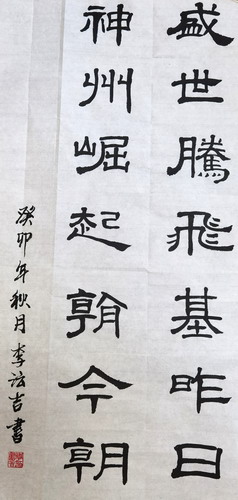 盛世騰飛基昨日
神州崛起翰今朝
癸卯年秋月李法吉書